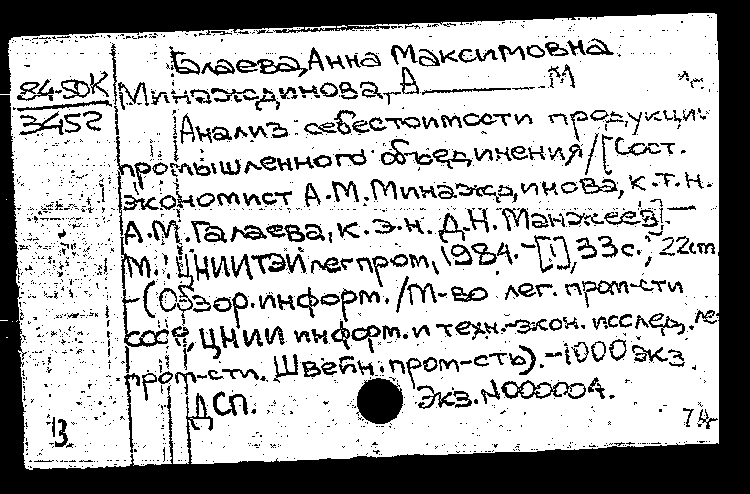 Галаева, Анна Максимовна
84-50К
3452
Минаждинова, А М
Анализ себестоимости продукции
промышленного объединения / [Сост.
экономист А.М. Минаждинова, к.т.н.
А.М. Галаева, к.э.н. Д.Н. Манжеев]. —
М.: ЦНИИТЭИлегпром, 1984. - [1], 33 с.; 22 см
- (Обзор. информ. / М-во лег. пром-сти
СССР, ЦНИИ информ. и техн.-экон. исслед. ле
пром-сти. Швейн. пром-сть). - 1000 экз.
ДСП. Экз. N000004.
13